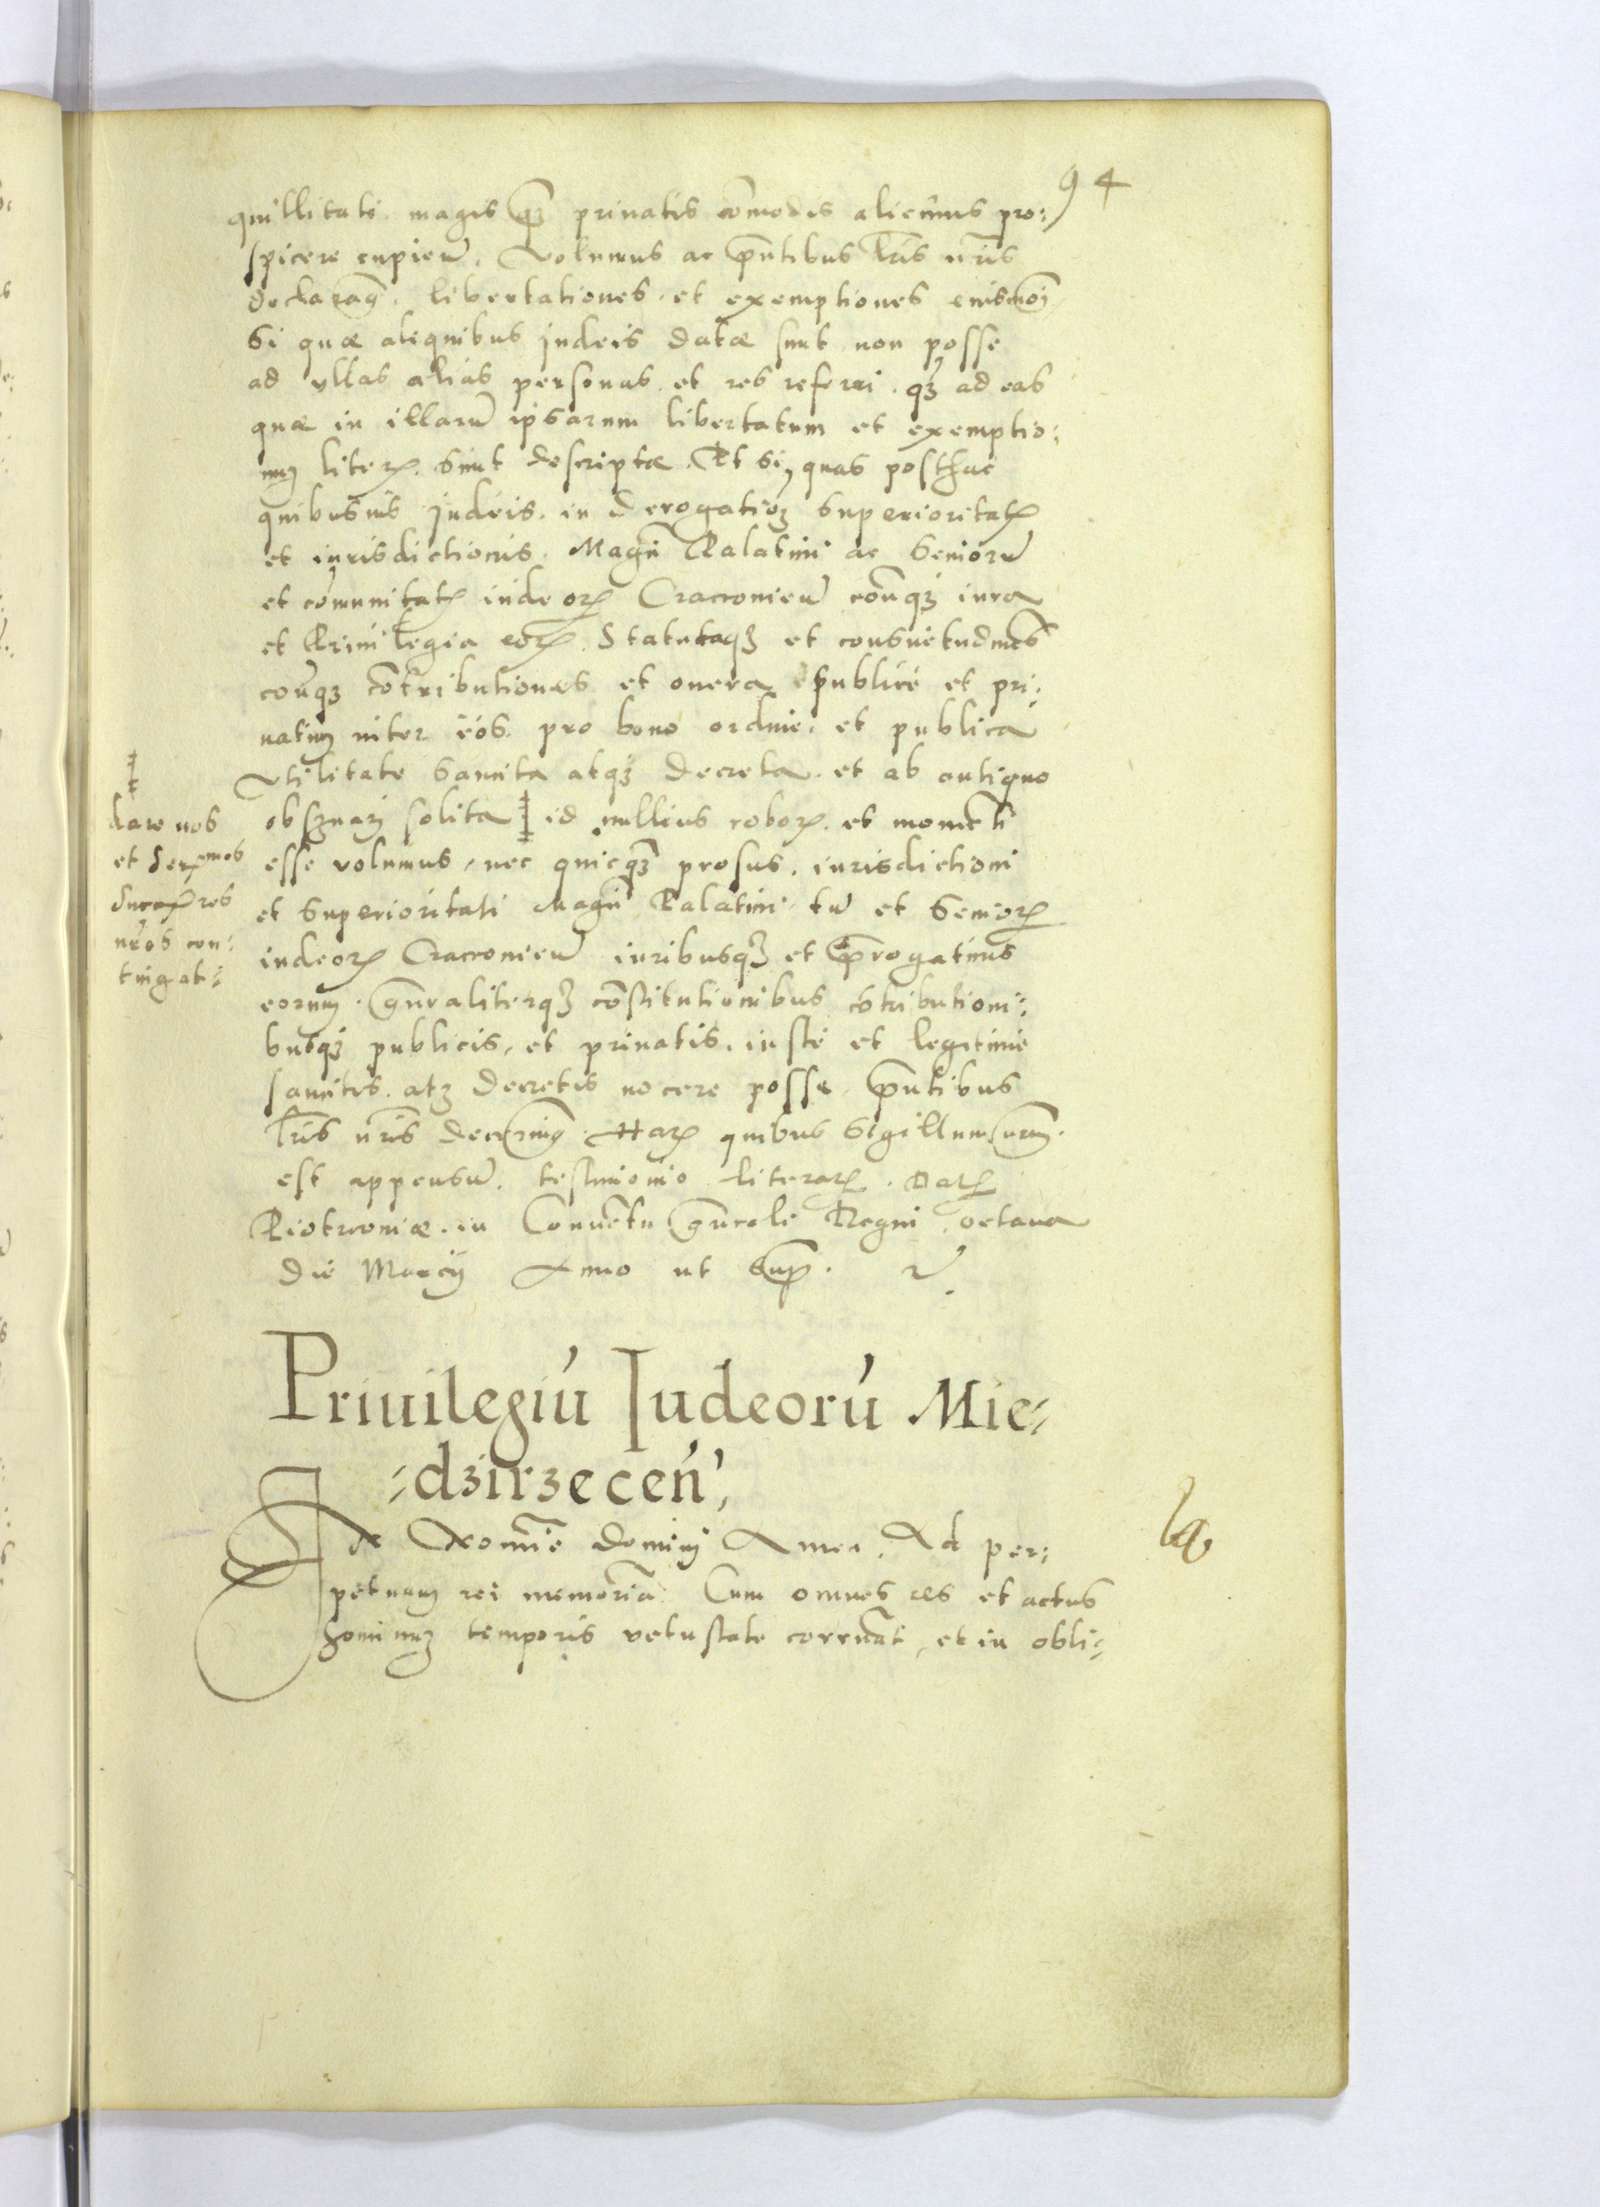 94
quillitati magis q̃ꝫ priuatis cõmodis alicuius pro:
spicere cupien̄. Volumus ac p̄ntibus l̃ris nr̃is
declaramꝰ. libertationes et exemptiones eiusmõi
Si quæ aliquibus Judeis datæ sunt non posse
ad ullas alias personas et res referri qꝫ ad eas
quæ in illarū ipsarum libertatum et exemptio:
nũ literꝭ sint descriptæ. Et si quas posthac
quibusuis Judeis in derogatioꝫ superioritatꝭ
et iurisdictionis Magn̄ Palatini ac Seniorū
et cõmunitatꝭ iudeorꝝ Cracouien̄ cõtraqꝫ iura
et Priuilegia eorꝝ Statutaqꝫ et consuetudines
contraqꝫ cõtributiones et onera publicè et pri:
uatim inter eos pro bono ordine et publica
Vtilitate sancita atqꝫ decreta et ab antiquo
obseruari solita ‡ id nullius roborꝭ et momẽti
esse volumus, nec quicqꝫ prosus iurisdictioni
et superioritati Magn̄ Palatini tū et Seniorꝝ
iudeorꝝ Cracouien̄ iuribusqꝫ et p̄rogatiuis
eorum. gn̄raliterqꝫ cõstitutionibus cõtributioni:
busqꝫ publicis, et priuatis iustè et legitimè
sancitis atqꝫ decretis nocere posse p̄ntibus
l̃ris nr̃is decernimꝰ. Harꝝ quibus Sigillum nr̃um
est appensū. testimonio literarꝝ. Datꝭ
Piotrcouiæ in Conuẽtu gn̄rali Regni octaua
die Marcij Anno ut supra.
‡
dare nos
et Ser^mos
Successores
nr̃os con:
tingat:
Priuilegiú Iudeorú Mie⸗
⸗dzirzeceń,
In Nomĩe Domini Amen. Ad per:
petuam rei memoriã. Cum omnes res et actus
hominuꝫ temporis vetustate corruãt, et in obli⸗